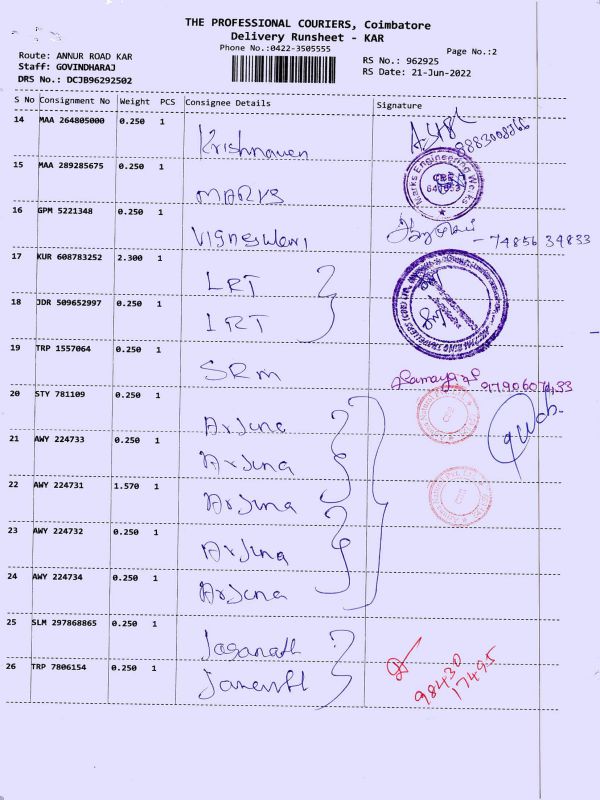 THE PROFESSIONAL COURIERS, Coimbatore
Delivery Runsheet - KAR
Phone No.:0422-3505555
Page No.:2
Route: ANNUR ROAD KAR
Staff: GOVINDHARAJ
DRS No.: DCJB96292502
RS No.: 962925
RS Date: 21-Jun-2022
S No Consignment No Weight PCS Consignee Details Signature
14 MAA 264805000 0.250 1 Krishnaveni
15 MAA 289285675 0.250 1 MARKS
Marks Engineering Works
16 GPM 5221348 0.250 1 Vigneshwari - 74856 34833
17 KUR 608783252 2.300 1 LRT
18 JDR 509652997 0.250 1 LRT
19 TRP 1557064 0.250 1 SRM
20 STY 781109 0.250 1 Arjuna
21 AWY 224733 0.250 1 Arjuna
22 AWY 224731 1.570 1 Arjuna
23 AWY 224732 0.250 1 Arjuna
24 AWY 224734 0.250 1 Arjuna
25 SLM 297868865 0.250 1 Jaganath
26 TRP 7806154 0.250 1
98430
17495